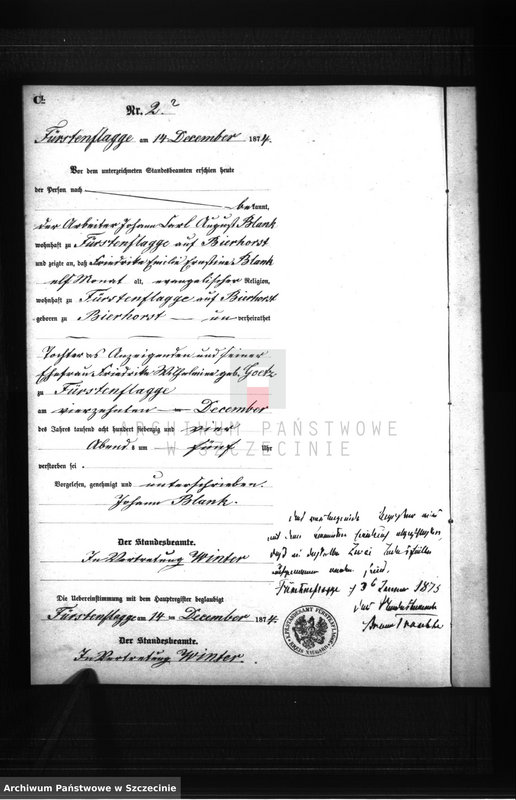 C.
Nr. 2
Fürstenflagge am 14 December 1874.
Vor dem unterzeichneten Standesbeamten erschien heute
der Person nach
bekannt,
der Arbeiter Johann Carl August Blank
wohnhaft zu Fürstenflagge auf Bierhorst
und zeigte an, daß Friedrike Emilie Ernstine Blank
elf Monat alt, evangelischer Religion,
wohnhaft zu Fürstenflagge auf Bierhorst
geboren zu Bierhorst — unverheirathet
Tochter des Anzeigenden und seiner
Ehefrau Friedrike Wilhelmine geb. Goetz
zu Fürstenflagge
am vierzehnten December
des Jahres tausend acht hundert siebenzig und vier
Abends um fünf Uhr
verstorben sei.
Vorgelesen, genehmigt und unterschrieben.
Johann Blank.
Der Standesbeamte.
In Vertretung Winter
Die Uebereinstimmung mit dem Hauptregister beglaubigt
Fürstenflagge am 14 December 1874.
Der Standesbeamte.
In Vertretung Winter.
Das vorliegende Register wird
mit dem
daß in demselben zwei Sterbefälle
worden sind.
Fürstenflagge d 3 Januar 1875
Der Standesbeamte
ARCHIWUM PAŃSTWOWE
W SZCZECINIE
Archiwum Państwowe w Szczecinie